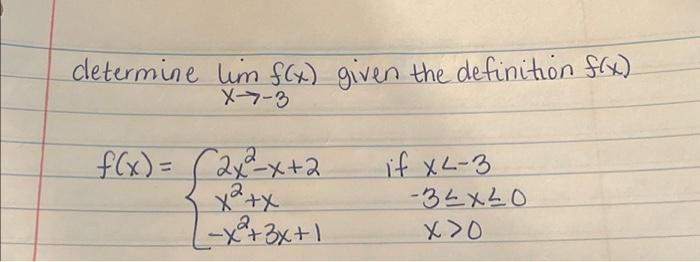 determine lim f(x) given the definition f(x)
x→-3
f(x) = { 2x²-x+2 if x<-3
x²+x -3≤x≤0
-x²+3x+1 x>0